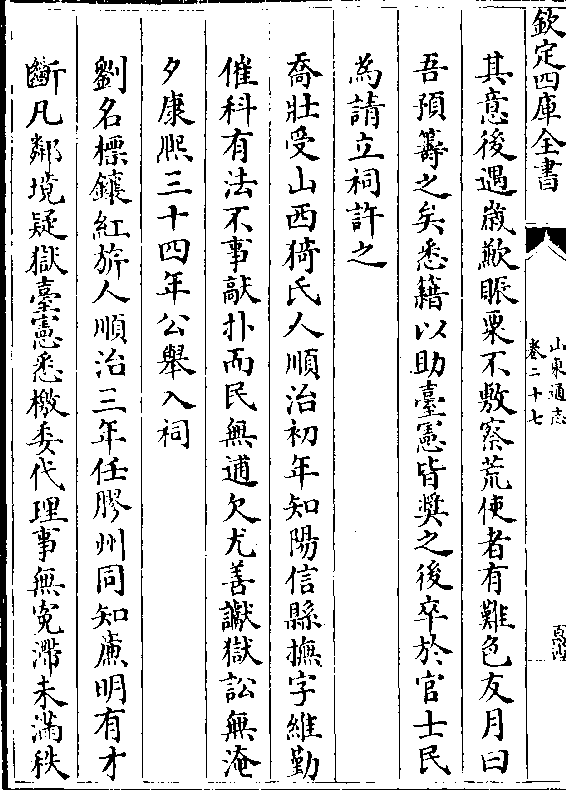 欽定四庫全書
山東通志
卷二十七
其意後遇歲歉賑粟不敷察荒使者有難色友月曰
吾預籌之矣悉籍以助臺憲皆奬之後卒於官士民
為請立祠許之
喬壯受山西猗氏人順治初年知陽信縣撫字維勤
催科有法不事敲扑而民無逋欠尤善讞獄訟無淹
夕康熙三十四年公舉入祠
劉名標鑲紅旂人順治三年任膠州同知亷明有才
斷凡鄰境疑獄臺憲悉檄委代理事無寃滯未滿秩